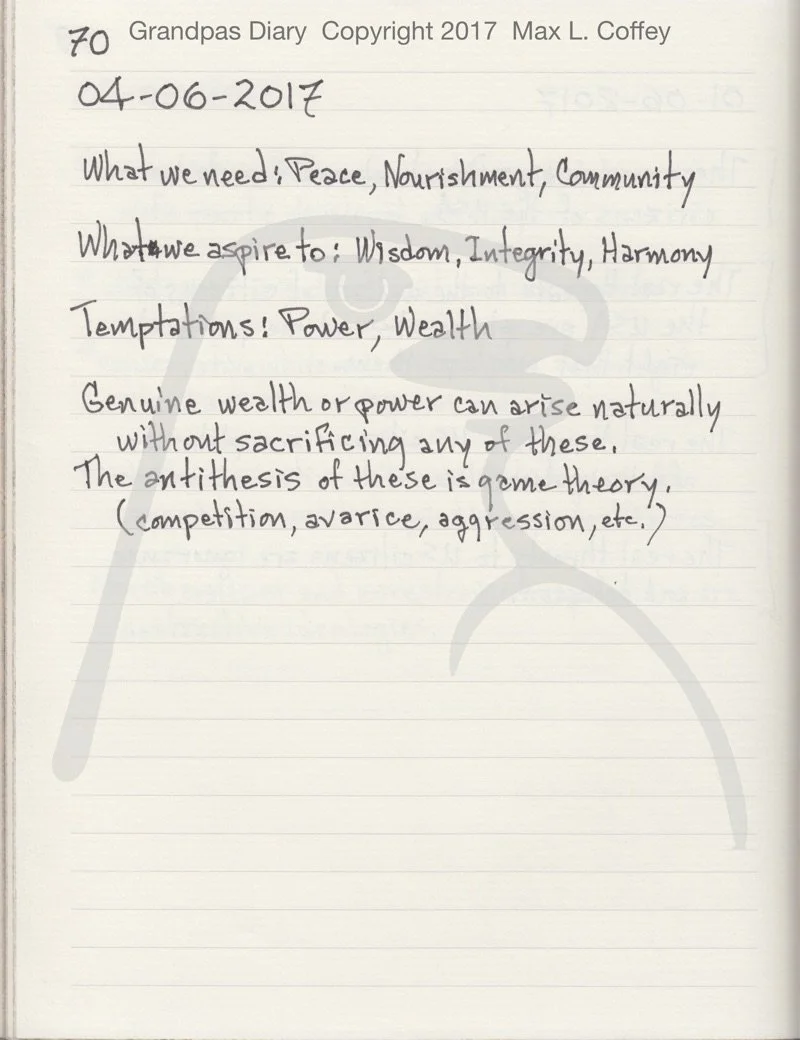 70 Grandpas Diary Copyright 2017 Max L. Coffey
04-06-2017
What we need: Peace, Nourishment, Community
What we aspire to: Wisdom, Integrity, Harmony
Temptations: Power, Wealth
Genuine wealth or power can arise naturally
without sacrificing any of these.
The antithesis of these is game theory.
(competition, avarice, aggression, etc.)